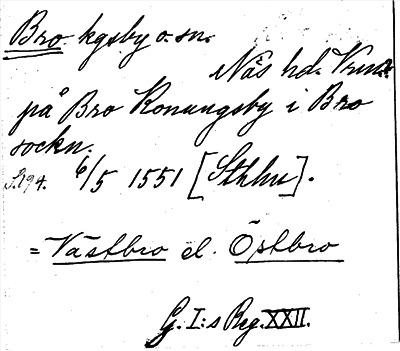 Bro kgsby o. sn.
Näs hd.
på Bro Konungsby i Bro
sockn.
S. 194. 6/5 1551 [Sthlm].
= Västbro el. Östbro
G. I:s Reg. XXII.